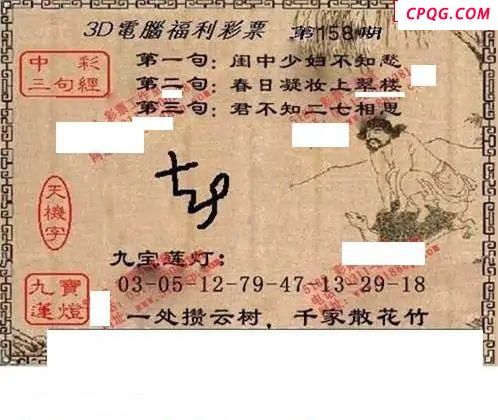 CPQG.COM
3D電腦福利彩票 第158期
中彩
三句經
第一句：闺中少妇不知愁
第二句：春日凝妆上翠楼
第三句：君不知二七相思
天機字
九宝莲灯：
九寶蓮燈
03-05-12-79-47 13-29-18
一处攒云树，千家散花竹